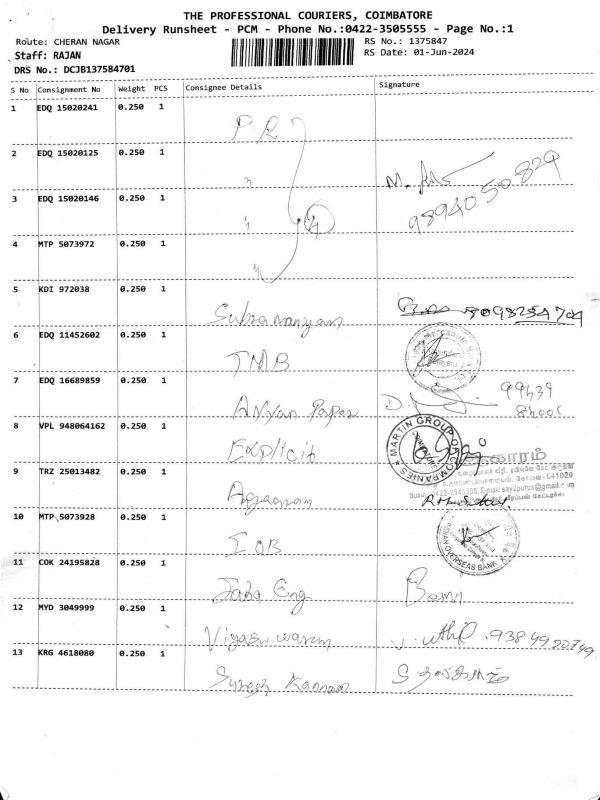 THE PROFESSIONAL COURIERS, COIMBATORE
Delivery Runsheet - PCM - Phone No.:0422-3505555 - Page No.:1
Route: CHERAN NAGAR
RS No.: 1375847
Staff: RAJAN
RS Date: 01-Jun-2024
DRS No.: DCJB137584701
S No Consignment No Weight PCS Consignee Details Signature
1 EDQ 15020241 0.250 1
2 EDQ 15020125 0.250 1 "
9894050829
3 EDQ 15020146 0.250 1 "
4 MTP 5073972 0.250 1 "
5 KDI 972038 0.250 1 Subramanyam
6 EDQ 11452602 0.250 1 TMB
7 EDQ 16689859 0.250 1 Aryan Paper
8 VPL 948064162 0.250 1 Explicit MARTIN GROUP OF COMPANIES
9 TRZ 25013482 0.250 1
641029
0422-2945565. E.mail: say2purus@gmail.com
10 MTP 5073928 0.250 1 IOB INDIAN OVERSEAS BANK
11 COK 24195828 0.250 1 Eng
12 MYD 3049999 0.250 1
13 KRG 4618080 0.250 1 Suresh Kannan